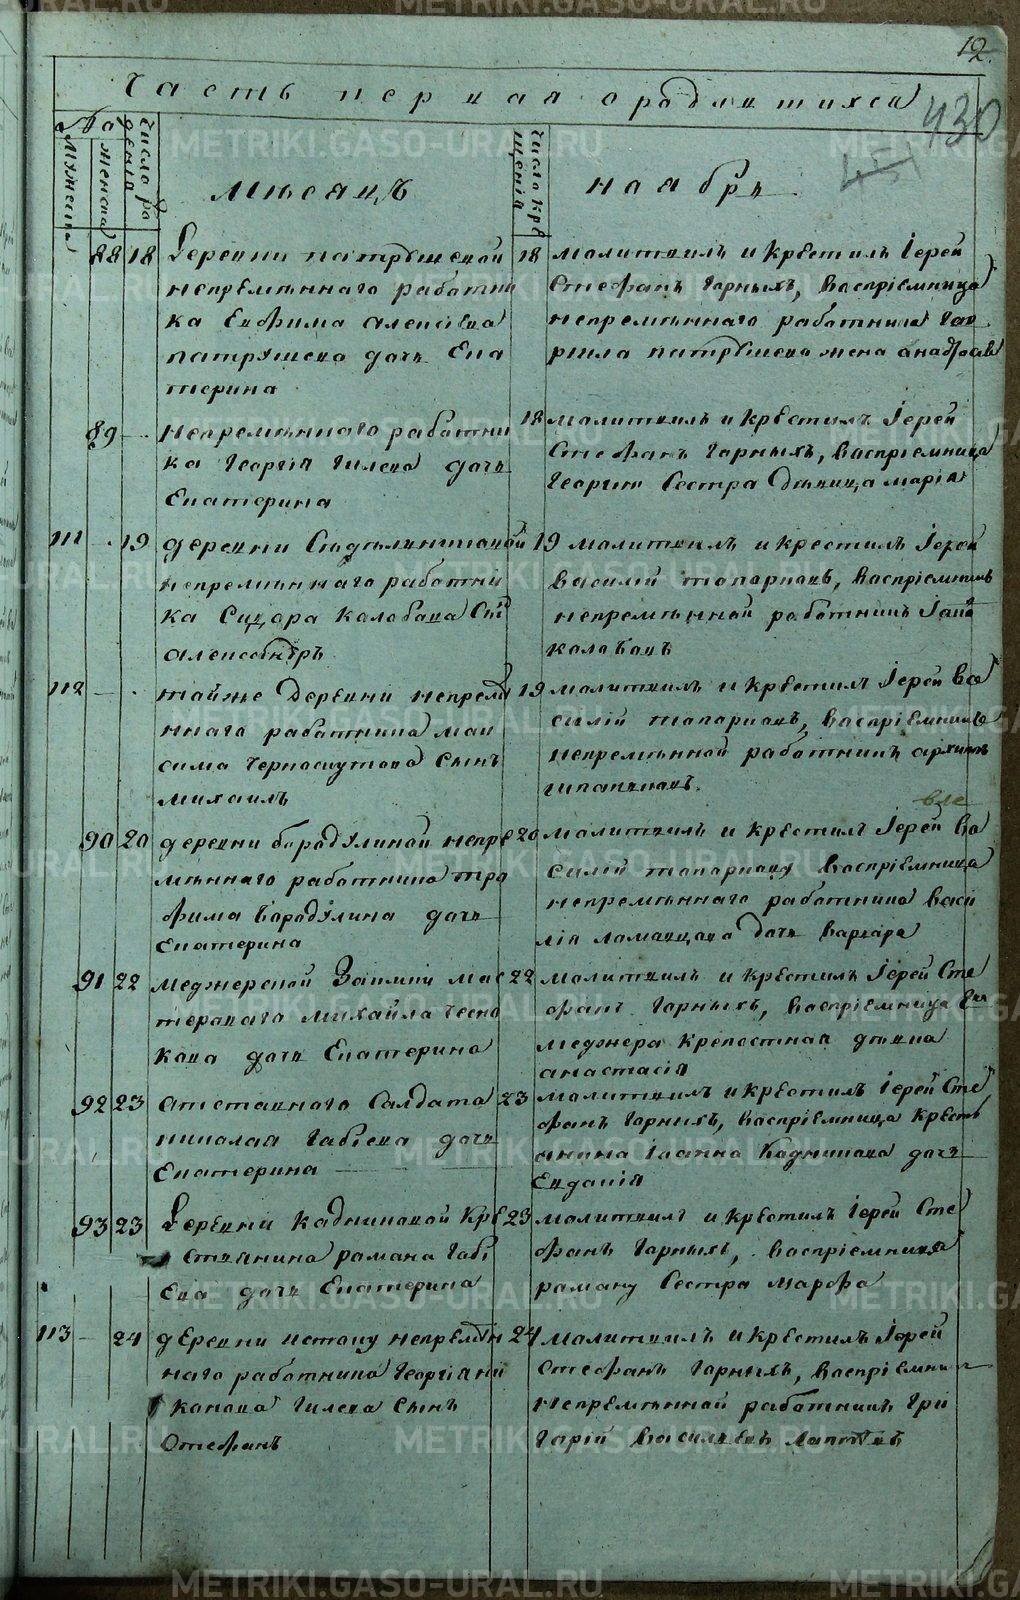 12.
Часть первая о рождшихся
430
No
мужеска
женска
число ро
ждения
Месяцъ
число кре
щения
ноября
88 18 Деревни патрушевой
непременнаго работни
ка Евфима алексеева
патрушева дочь Ека
терина
18 молитвилъ и крестилъ Іерей
Стефанъ Горныхъ, восприемница
непременнаго работника Гав
риила патрушева жена
89 непременнаго работни
ка Георгія Гилева дочь
Екатерина
18 молитвилъ и крестилъ Іерей
Стефанъ Горныхъ, восприемница
Георгию Сестра девица марія
111 19 деревни
непременнаго работни
ка Сидора Колобова Сынъ
александръ
19 молитвилъ и крестилъ Іерей
василій топорковъ, восприемникъ
непременной работникъ
колобовъ
112 тойже Деревни непреме
ннаго работника мак
сима Черноскутова Сынъ
михаилъ
19 молитвилъ и крестилъ Іерей Ва
силій топорковъ, восприемникъ
непременной работникъ архипъ
90 20 деревни бородулиной непре
меннаго работника тро
фима бородулина дочь
Екатерина
20 молитвилъ и крестилъ Іерей Ва
силій топорковъ восприемница
непременнаго работника Васи
лія ломовцова дочь варвара
91 22 меджерской Заимки мас
тероваго михайла чесно
кова дочь Екатерина
22 молитвилъ и крестилъ Іерей Сте
фанъ Горныхъ, восприемница
меджера крепостная девка
анастасія
92 23 отставнаго Салдата
николая бабіева дочь
Екатерина
23 молитвилъ и крестилъ Іерей Сте
фанъ Горныхъ, восприемница крестъ
янина Іоанна Кадникова дочь
Евдокія
93 23 Деревни кадниковой Кре
стьянина романа бабі
ева дочь Екатерина
23 молитвилъ и крестилъ Іерей Сте
фанъ Горныхъ, восприемница
роману Сестра марфа
113 24 деревни истоку непремен
наго работника Георгія ни
конова Гилева Сынъ
Стефанъ
24 молитвилъ и крестилъ Іерей
Стефанъ Горныхъ, восприемникъ
непременной работникъ Гри
горій васильевъ лаптевъ
METRIKI.GASO-URAL.RU